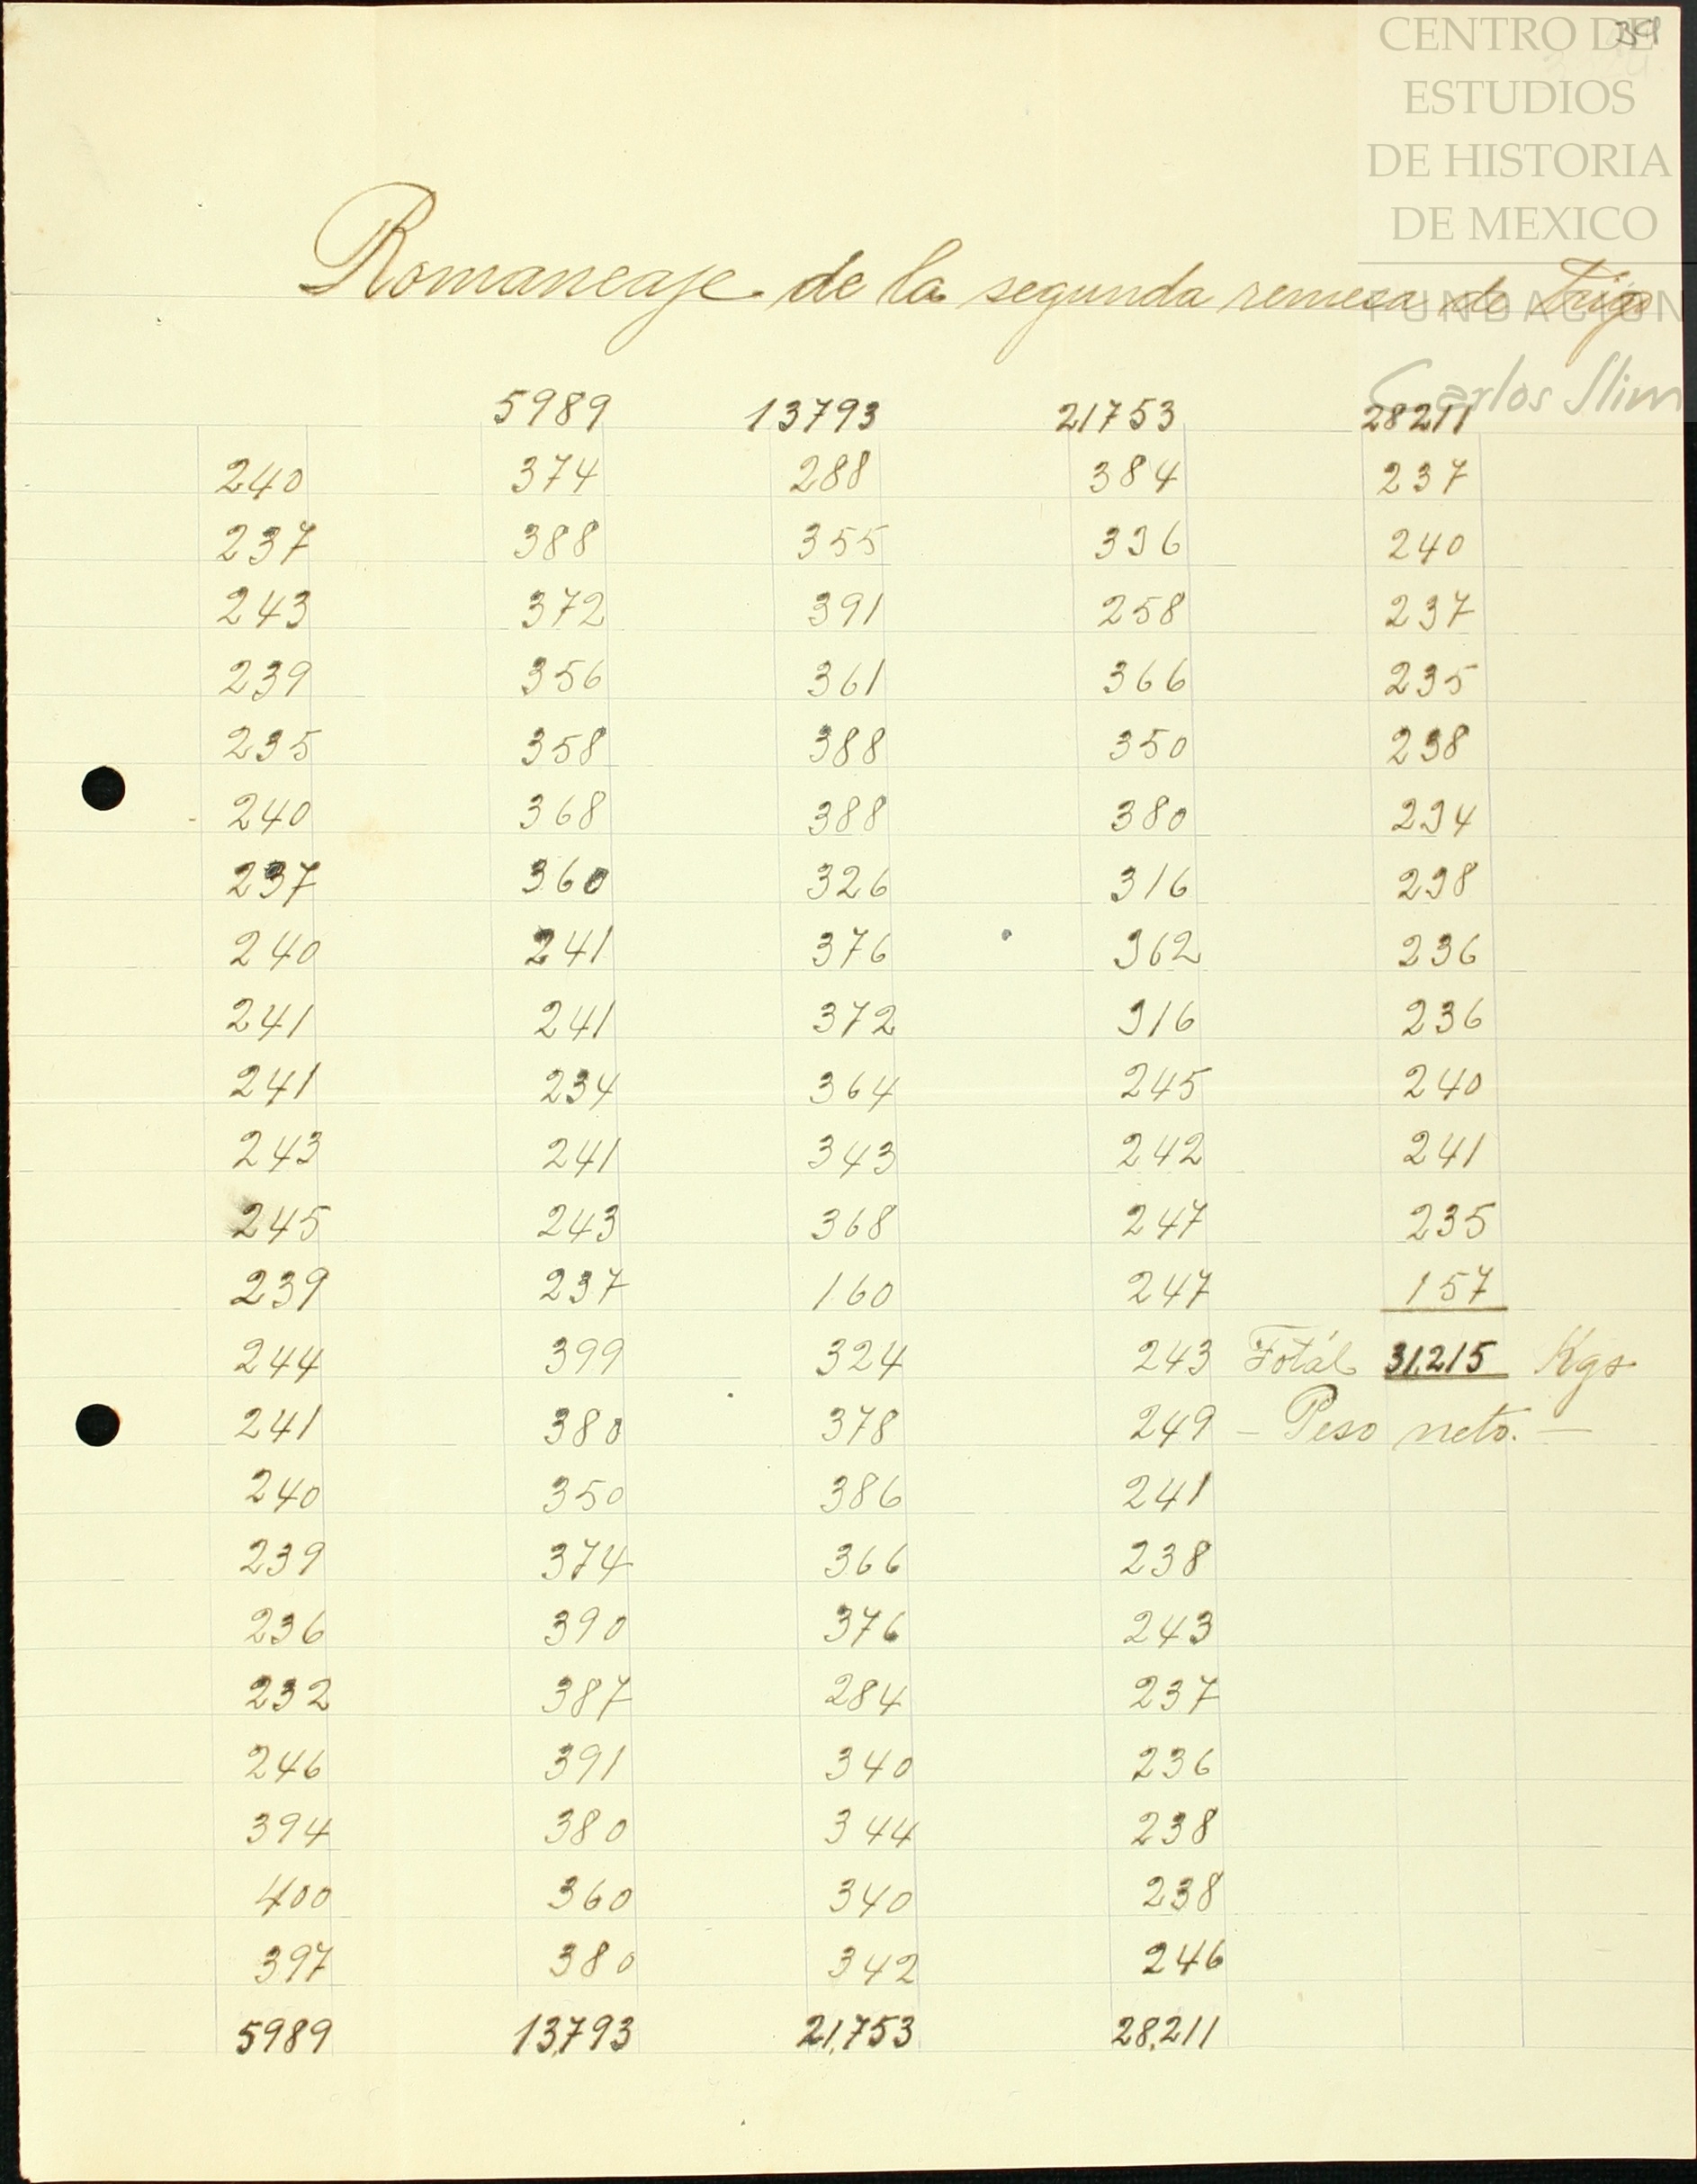 CENTRO DE
ESTUDIOS
DE HISTORIA
DE MEXICO
FUNDACIÓN
Carlos Slim
Romaneaje de la segunda remesa de Trigo
5989 13793 21753 28211
240 374 288 384 237
237 388 355 336 240
243 372 391 258 237
239 356 361 366 235
235 358 388 350 238
240 368 388 380 234
237 360 326 316 238
240 241 376 362 236
241 241 372 316 236
241 234 364 245 240
243 241 343 242 241
245 243 368 247 235
239 237 160 247 157
244 399 324 243 Totál 31,215 Kgs
241 380 378 249 - Peso neto. -
240 350 386 241
239 374 366 238
236 390 376 243
232 387 284 237
246 391 340 236
394 380 344 238
400 360 340 238
397 380 342 246
5989 13,793 21,753 28,211